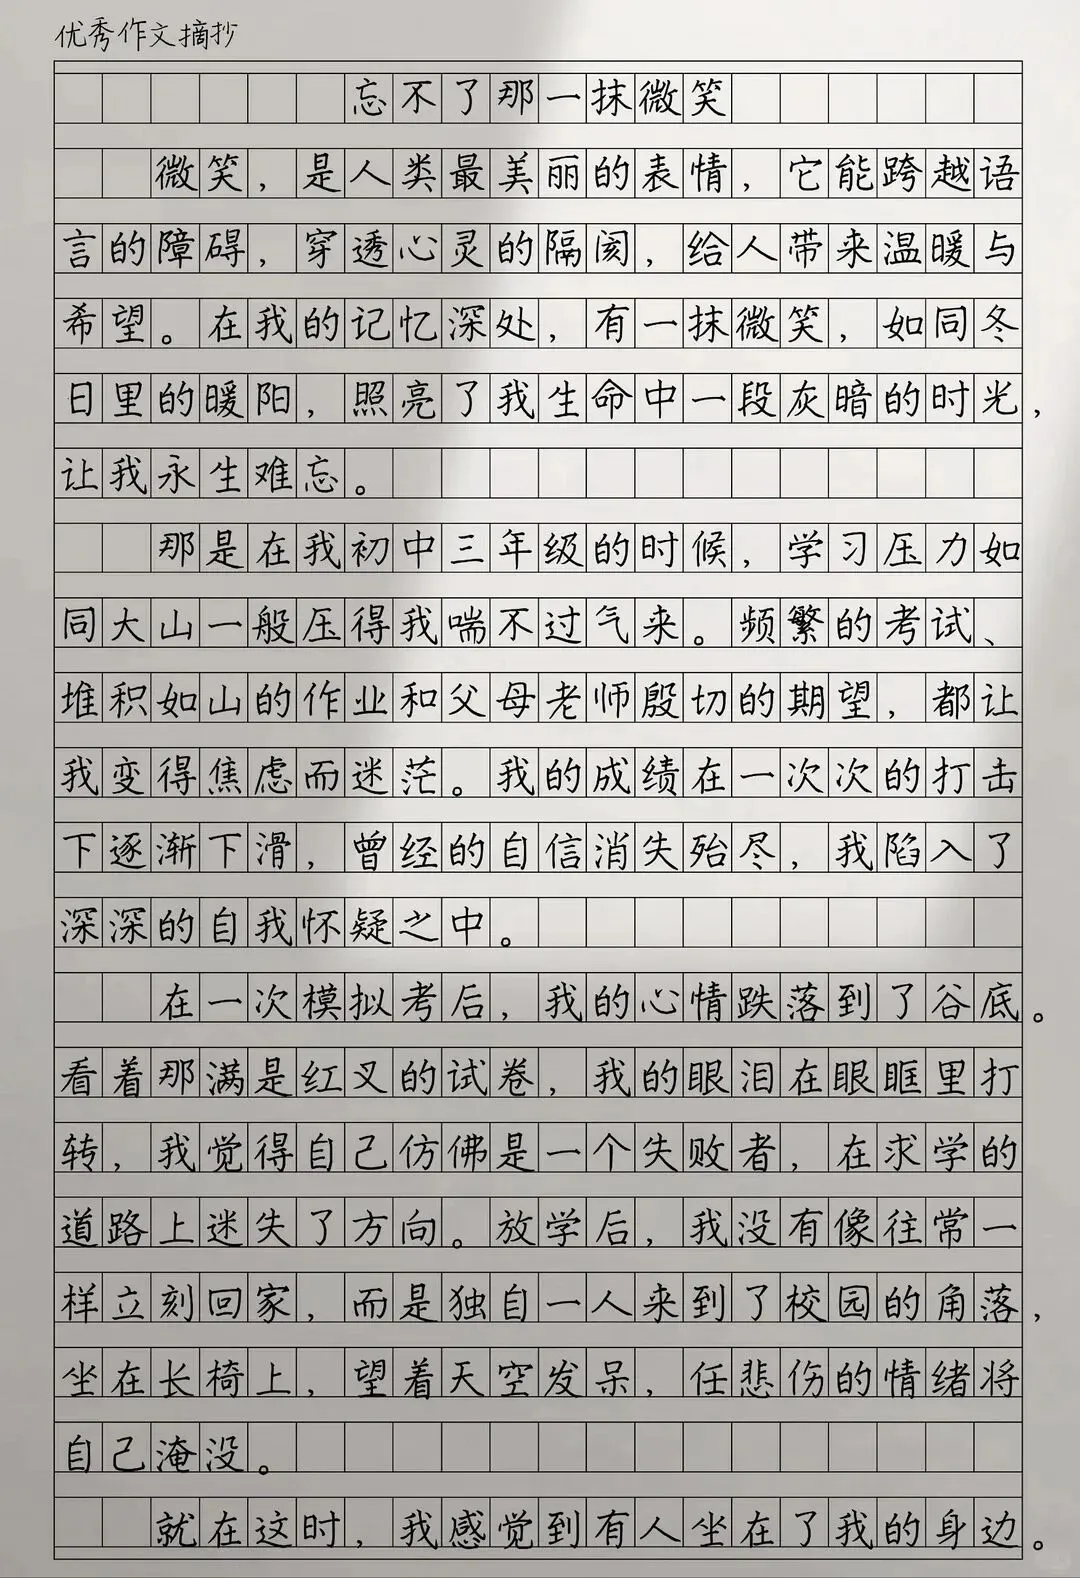 优秀作文摘抄
忘不了那一抹微笑
微笑，是人类最美丽的表情，它能跨越语
言的障碍，穿透心灵的隔阂，给人带来温暖与
希望。在我的记忆深处，有一抹微笑，如同冬
日里的暖阳，照亮了我生命中一段灰暗的时光，
让我永生难忘。
那是在我初中三年级的时候，学习压力如
同大山一般压得我喘不过气来。频繁的考试、
堆积如山的作业和父母老师殷切的期望，都让
我变得焦虑而迷茫。我的成绩在一次次的打击
下逐渐下滑，曾经的自信消失殆尽，我陷入了
深深的自我怀疑之中。
在一次模拟考后，我的心情跌落到了谷底。
看着那满是红叉的试卷，我的眼泪在眼眶里打
转，我觉得自己仿佛是一个失败者，在求学的
道路上迷失了方向。放学后，我没有像往常一
样立刻回家，而是独自一人来到了校园的角落，
坐在长椅上，望着天空发呆，任悲伤的情绪将
自己淹没。
就在这时，我感觉到有人坐在了我的身边。